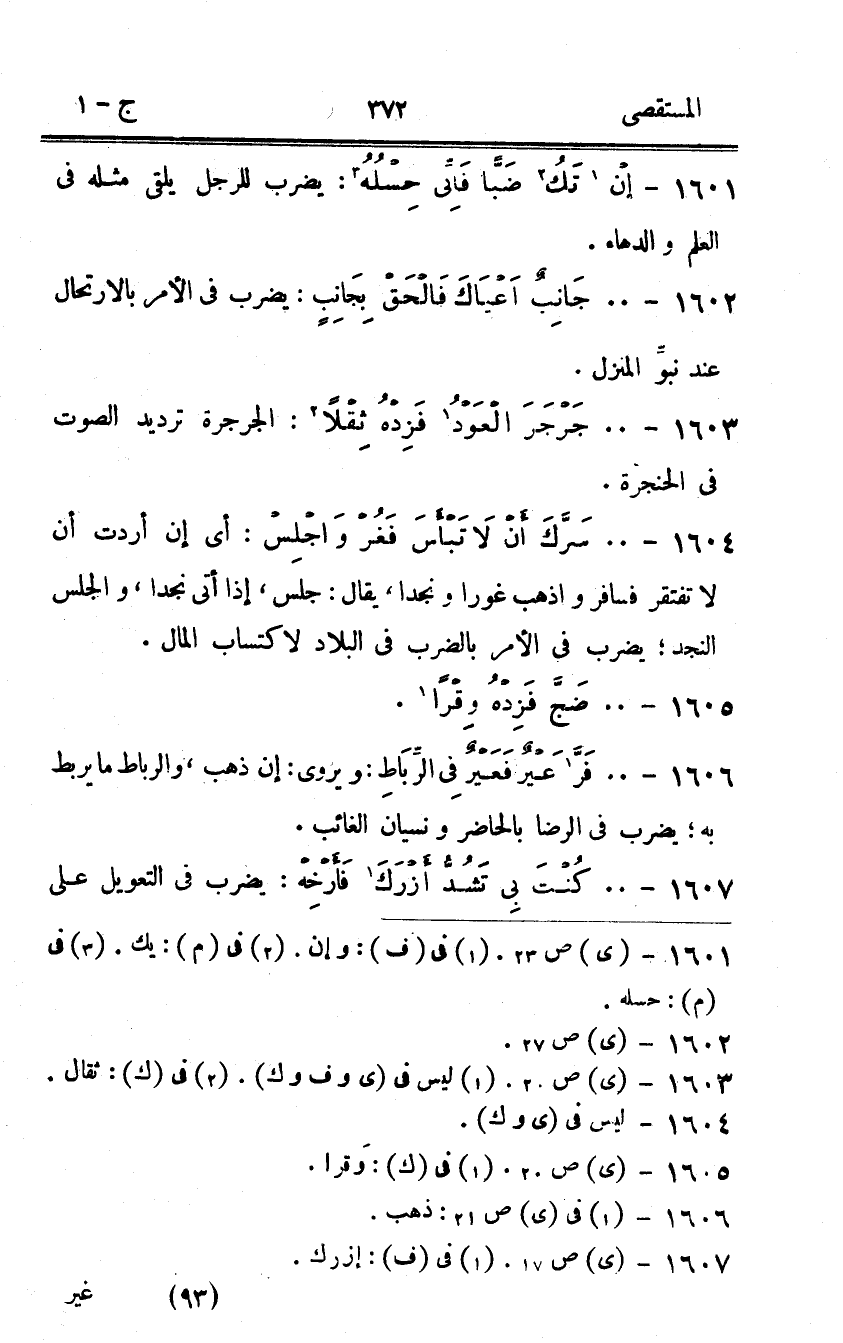 المستقصى ٣٧٢ ج - ١
١٦٠١ - إِنْ ١ تَكُ ٢ ضَبًّا فَإِنِّى حِسْلُهُ ٣ : يضرب للرجل يلقى مثله فى
العلم و الدهاء .
١٦٠٢ - .. جَانِبٌ أَعْيَاكَ فَالْحَقْ بِجَانِبٍ : يضرب فى الأمر بالارتحال
عند نبوِّ المنزل .
١٦٠٣ - .. جَرْجَرَ الْعَوْدُ ١ فَزِدْهُ ثِقْلًا ٢ : الجرجرة ترديد الصوت
فى الحنجرة .
١٦٠٤ - .. سَرَّكَ أَنْ لَا تَبْأَسَ فَغُرْ وَ اجْلِسْ : أى إن أردت أن
لا تفتقر فسافر و اذهب غورا و نجدا ، يقال : جلس ، إذا أتى نجدا ، و الجلس
النجد ؛ يضرب فى الأمر بالضرب فى البلاد لاكتساب المال .
١٦٠٥ - .. ضَجَّ فَزِدْهُ وِقْرًا ١ .
١٦٠٦ - .. فَرَّ ١ عَيْرٌ فَعَيْرٌ فِى الرِّبَاطِ : و يروى : إن ذهب ، والرباط ما يربط
به ؛ يضرب فى الرضا بالحاضر و نسيان الغائب .
١٦٠٧ - .. كُنْتَ بِى تَشُدُّ أَزْرَكَ ١ فَأَرْخِهْ : يضرب فى التعويل على
١٦٠١ - (ى) ص ٢٣ . (١) فى (ف) : و إن . (٢) فى (م) : يك . (٣) فى
(م) : حسله .
١٦٠٢ - (ى) ص ٢٧ .
١٦٠٣ - (ى) ص ٢٠ . (١) ليس فى (ى و ف و ك) . (٢) فى (ك) : ثقال .
١٦٠٤ - ليس فى (ى و ك) .
١٦٠٥ - (ى) ص ٢٠ . (١) فى (ك) : وَقرا .
١٦٠٦ - (١) فى (ى) ص ٢١ : ذهب .
١٦٠٧ - (ى) ص ١٧ . (١) فى (ف) : إزرك .
(٩٣) غير